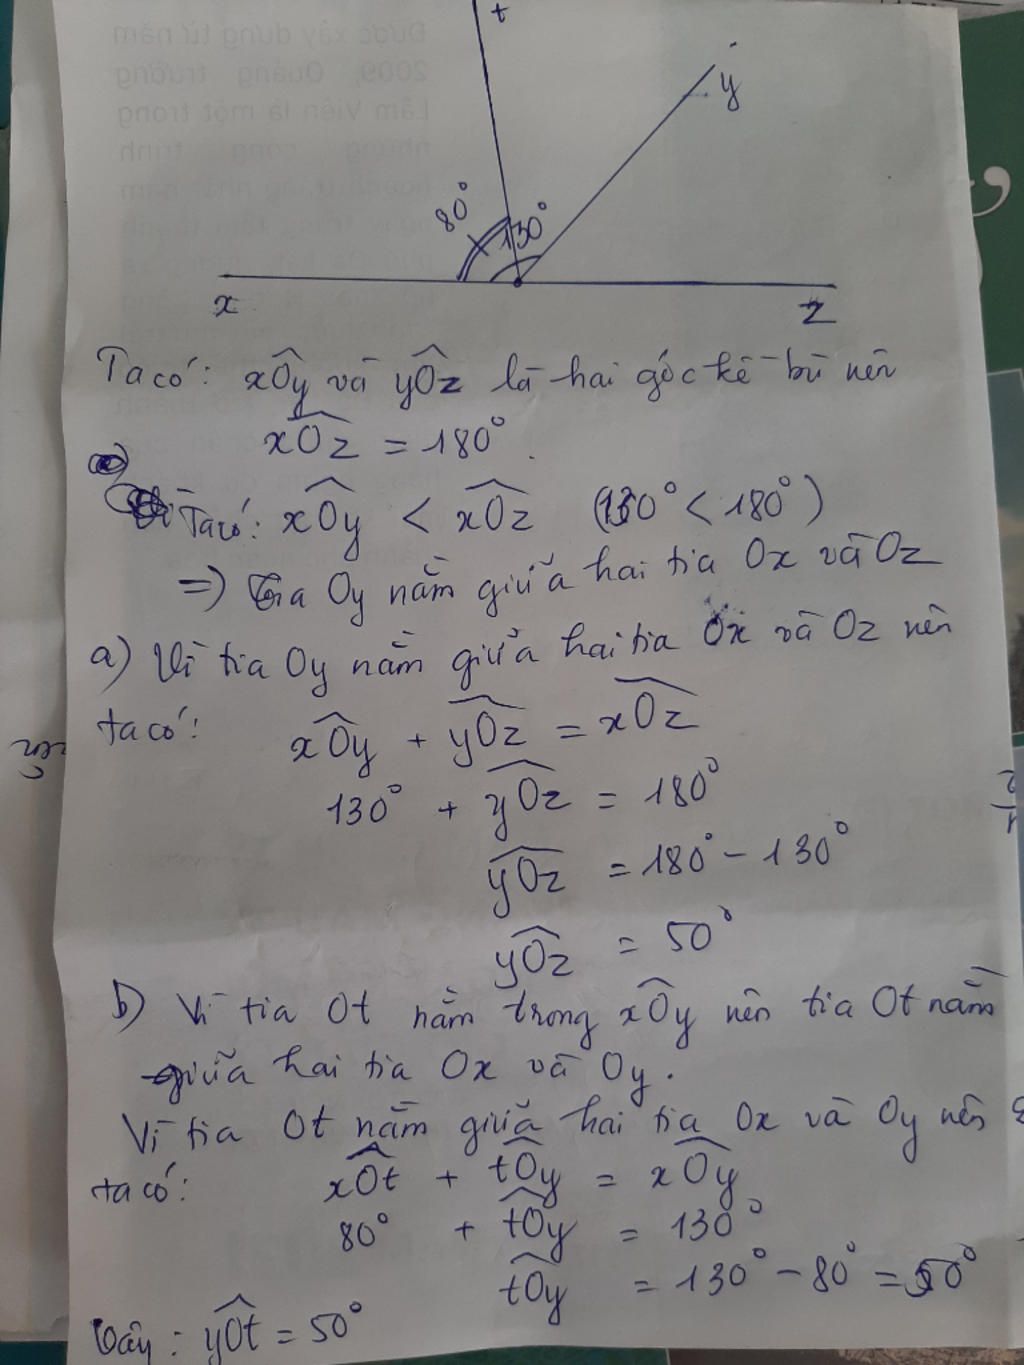 t
y
80°
130°
x
z
Ta có: xOy và yOz là hai góc kề bù nên
xOz = 180°.
Ta có: xOy < xOz (130° < 180°)
=) Tia Oy nằm giữa hai tia Ox và Oz
a) Vì tia Oy nằm giữa hai tia Ox và Oz nên
ta có: xOy + yOz = xOz
130° + yOz = 180°
yOz = 180° - 130°
yOz = 50°
b) Vì tia Ot nằm trong xOy nên tia Ot nằm
giữa hai tia Ox và Oy.
Vì tia Ot nằm giữa hai tia Ox và Oy nên
ta có: xOt + tOy = xOy
80° + tOy = 130°
tOy = 130° - 80° = 50°
Vậy: yOt = 50°